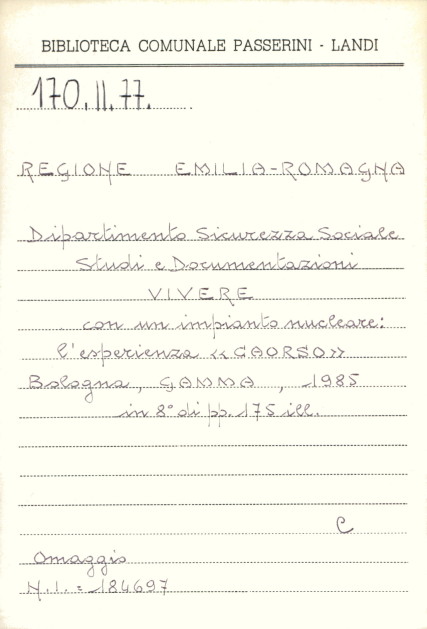 BIBLIOTECA COMUNALE PASSERINI - LANDI
170.II.77.
REGIONE EMILIA-ROMAGNA
Dipartimento Sicurezza Sociale
Studi e Documentazioni
VIVERE
con un impianto nucleare:
l'esperienza «CAORSO»
Bologna, GAMMA, 1985
in 8° di pp. 175 ill.
C
Omaggio
N.I. = 184697